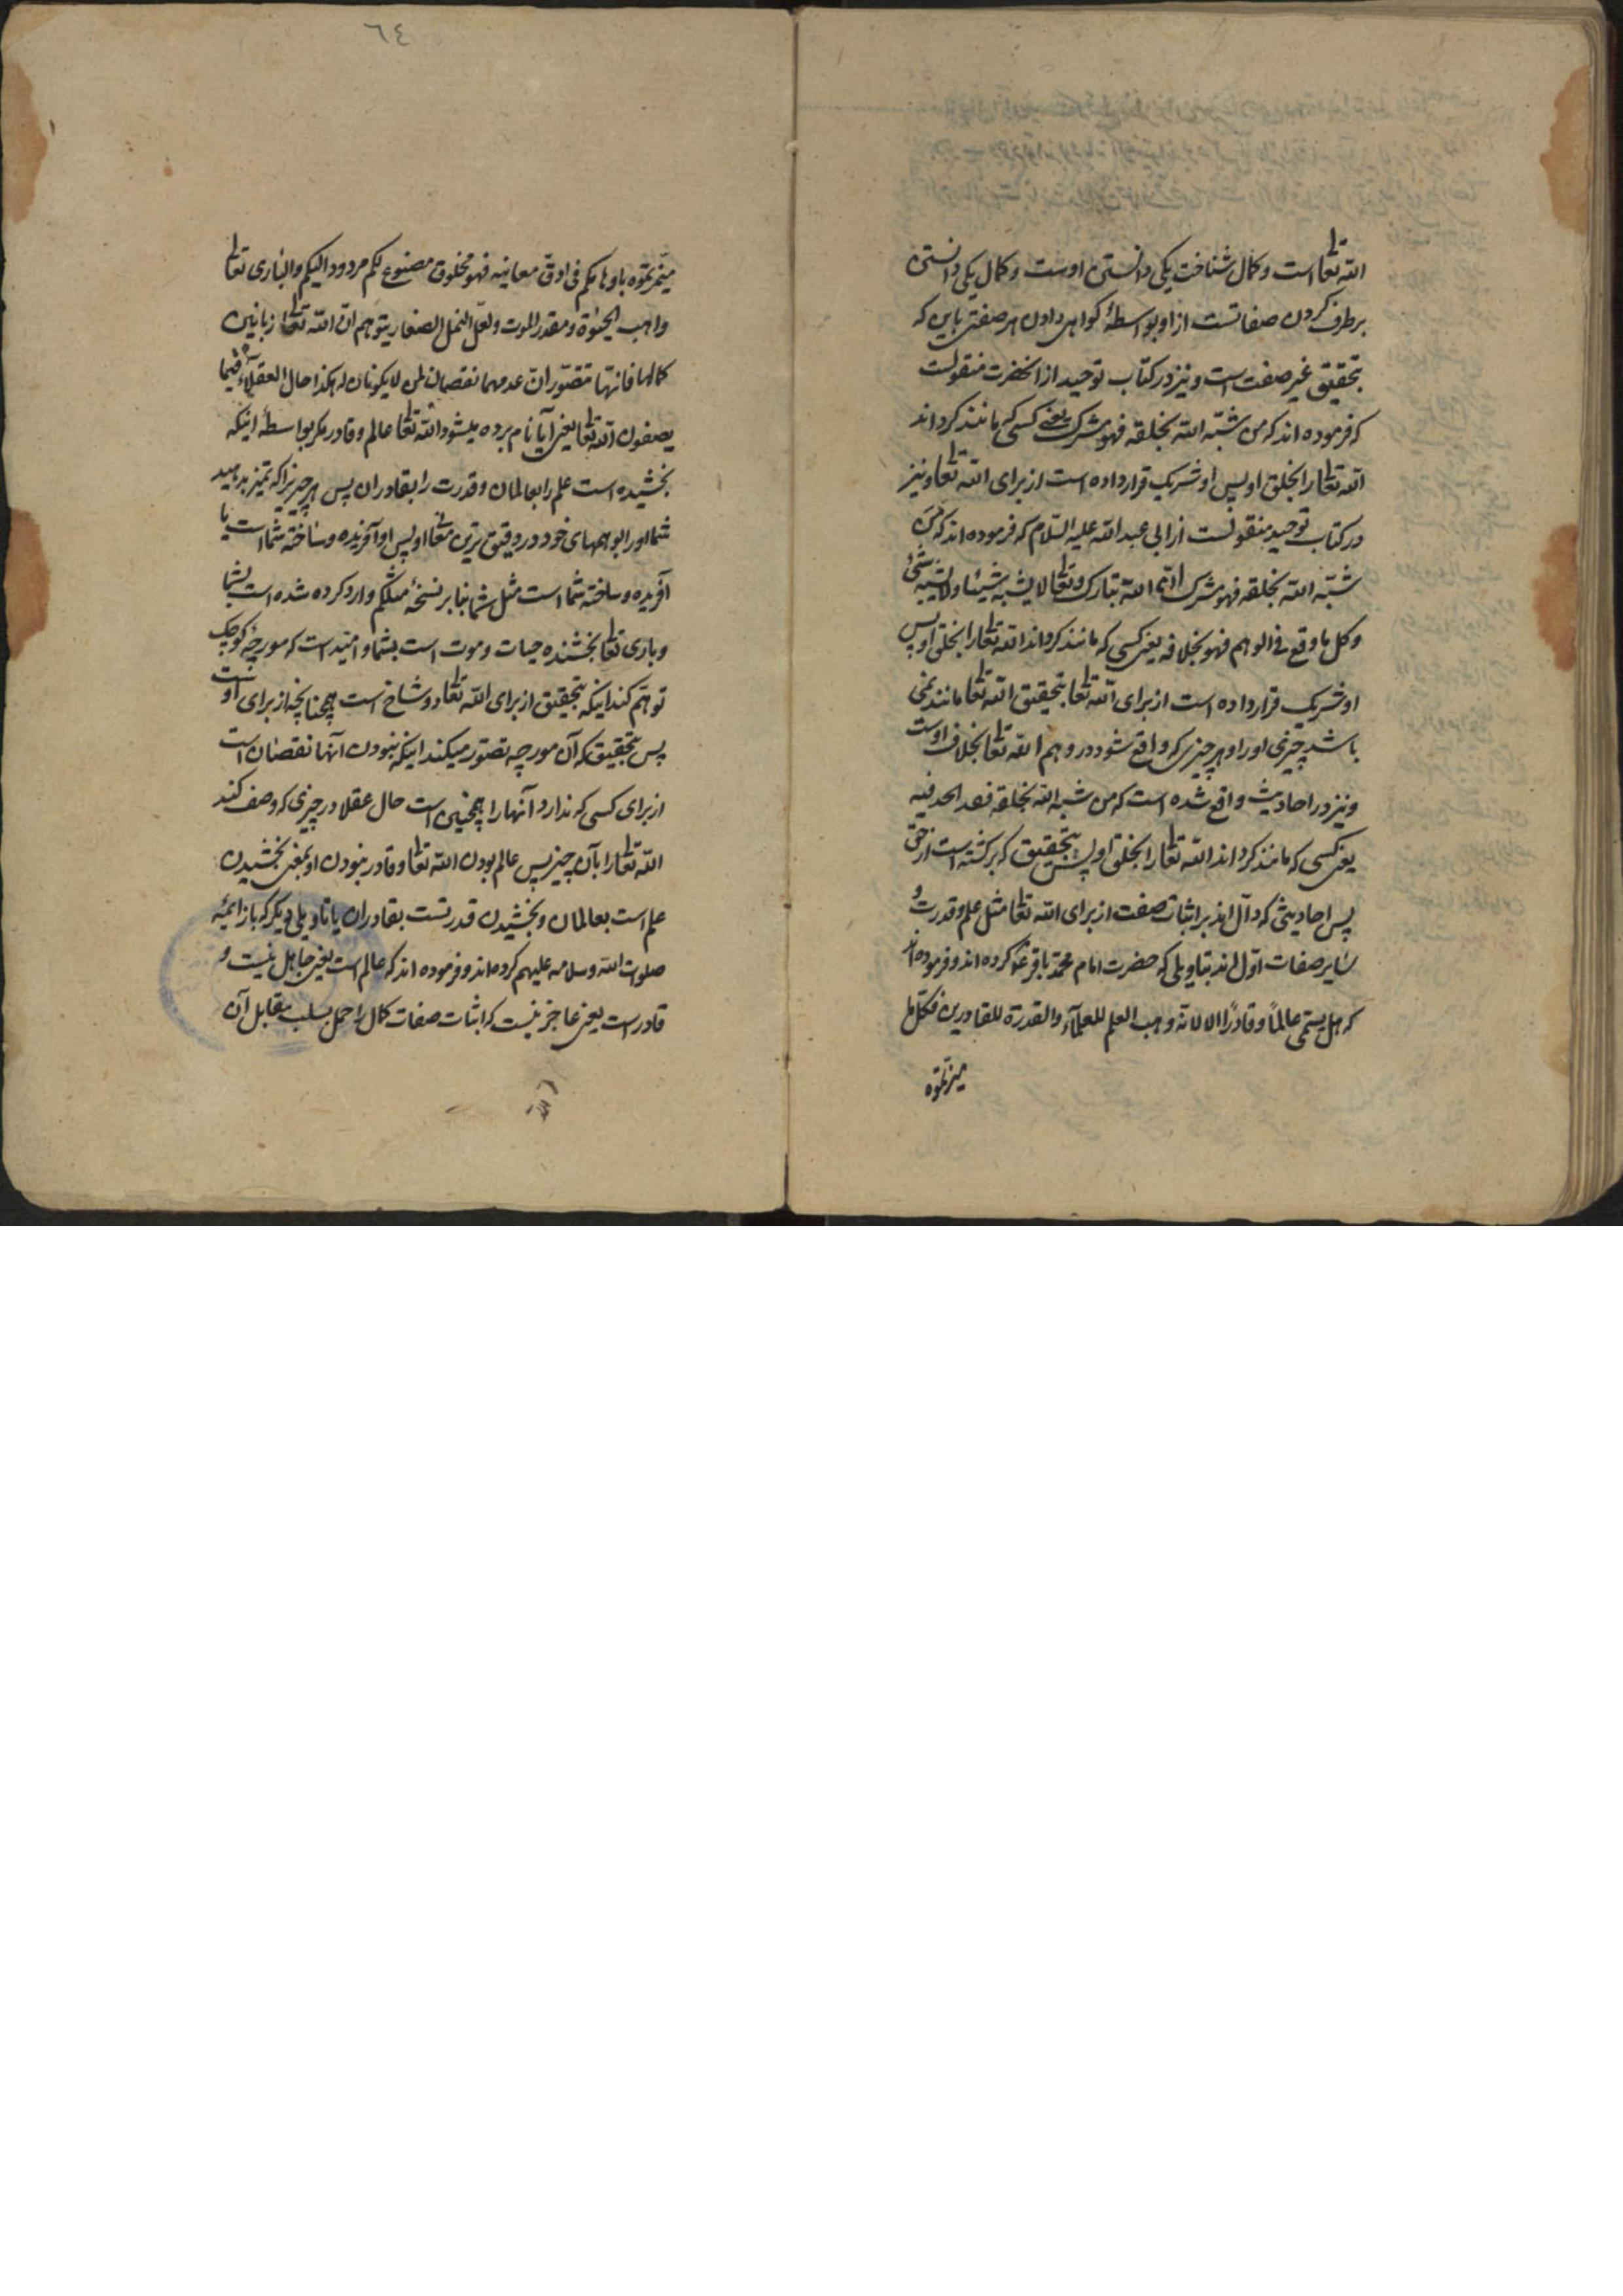 الله تعا است و کمال شناخت یکی دانستن اوست و کمال یکی دانستن
برطرف کردن صفاتست از او بواسطهٔ کواهی دادن هر صفتی باین که
بتحقیق غیر صفت است و نیز در کتاب توحید از انحضرت منقولست
که فرموده اند که من شبّه الله بخلقه فهو مشرک یعنی کسی که مانند کرداند
الله تعا را بخلق او پس او شریک قرار داده است از برای الله تعا و نیز
در کتاب توحید منقولست از ابی عبد الله علیه السّلام که فرموده اند که من
شبّه الله بخلقه فهو مشرک انّ الله تبارک و تعا لا یشبه شیئا و لا یشبهه شیٔ
و کل ما وقع فی الوهم فهو بخلافه یعنی کسی که مانند کرداند الله تعا را بخلق او پس
او شریک قرار داده است از برای الله تعا بتحقیق الله تعا مانند نمی
باشد چیزی او را و هر چیزی که واقع شود در وهم الله تعا بخلاف اوست
و نیز در احادیث واقع شده است که من شبه الله بخلقه فقد الحد فیه
یعنی کسی که مانند کرداند الله تعا را بخلق او پس بتحقیق که برکشته است از حق
پس احادیثی که دالّ اند بر اثبات صفت از برای الله تعا مثل علم و قدرت و
سایر صفات اوّل اند بتاویلی که حضرت امام محمّد باقر ع کرده اند و فرموده اند
که هل یسمّی عالماً و قادرًا الا لانه وهب العلم للعلمآء و القدرة للقادرین فکل ما
میزتموه
٦٤
میّزتموه باوهامکم فی ادقّ معانیه فهو مخلوق مصنوع لکم مردود الیکم و الباری تعا
واهب الحیٰوة و مقدر الموت و لعلّ النمل الصغار یتوهم انّ الله تعا زبانین
کمالها فانّها تتصّور انّ عدمهما نقصان لمن لا یکونان له هکذا حال العقلآء فیما
یصفون الله تعا یعنی آیا نام برده میشود الله تعا عالم و قادر مکر بواسطهٔ اینکه
بخشیده است علم را بعالمان و قدرت را بقادران پس هر چیزیرا که تمیز بدهید
شما او را بوهمهای خود در دقیق ترین معانی او پس او آفریده و ساخته شما است یا
آفریده و ساخته شما است مثل شما بنا بر نسخهٔ مثلکم وارد کرده شده است بشما
و باری تعا بخشنده حیات و موت است بشما و امید است که مورچهٔ کوچک
توهّم کند اینکه بتحقیق از برای الله تعا دو شاخ است همچنانچه از برای اوست
پس بتحقیق که آن مورچه تصّور میکند اینکه نبودن آنها نقصان است
از برای کسی که ندارد آنها را همچنین است حال عقلا در چیزی که وصف کنند
الله تعا را بآن چیز پس عالم بودن الله تعا و قادر بودن او بمعنی بخشیدن
علم است بعالمان و بخشیدن قدرتست بقادران یا تاویلی دیکر که باز ائمّه
صلوات الله و سلامه علیهم کرده اند و فرموده اند که عالم است یعنی جاهل نیست و
قادر است یعنی عاجز نیست که اثبات صفات کمال را حمل بسلب مقابل آن